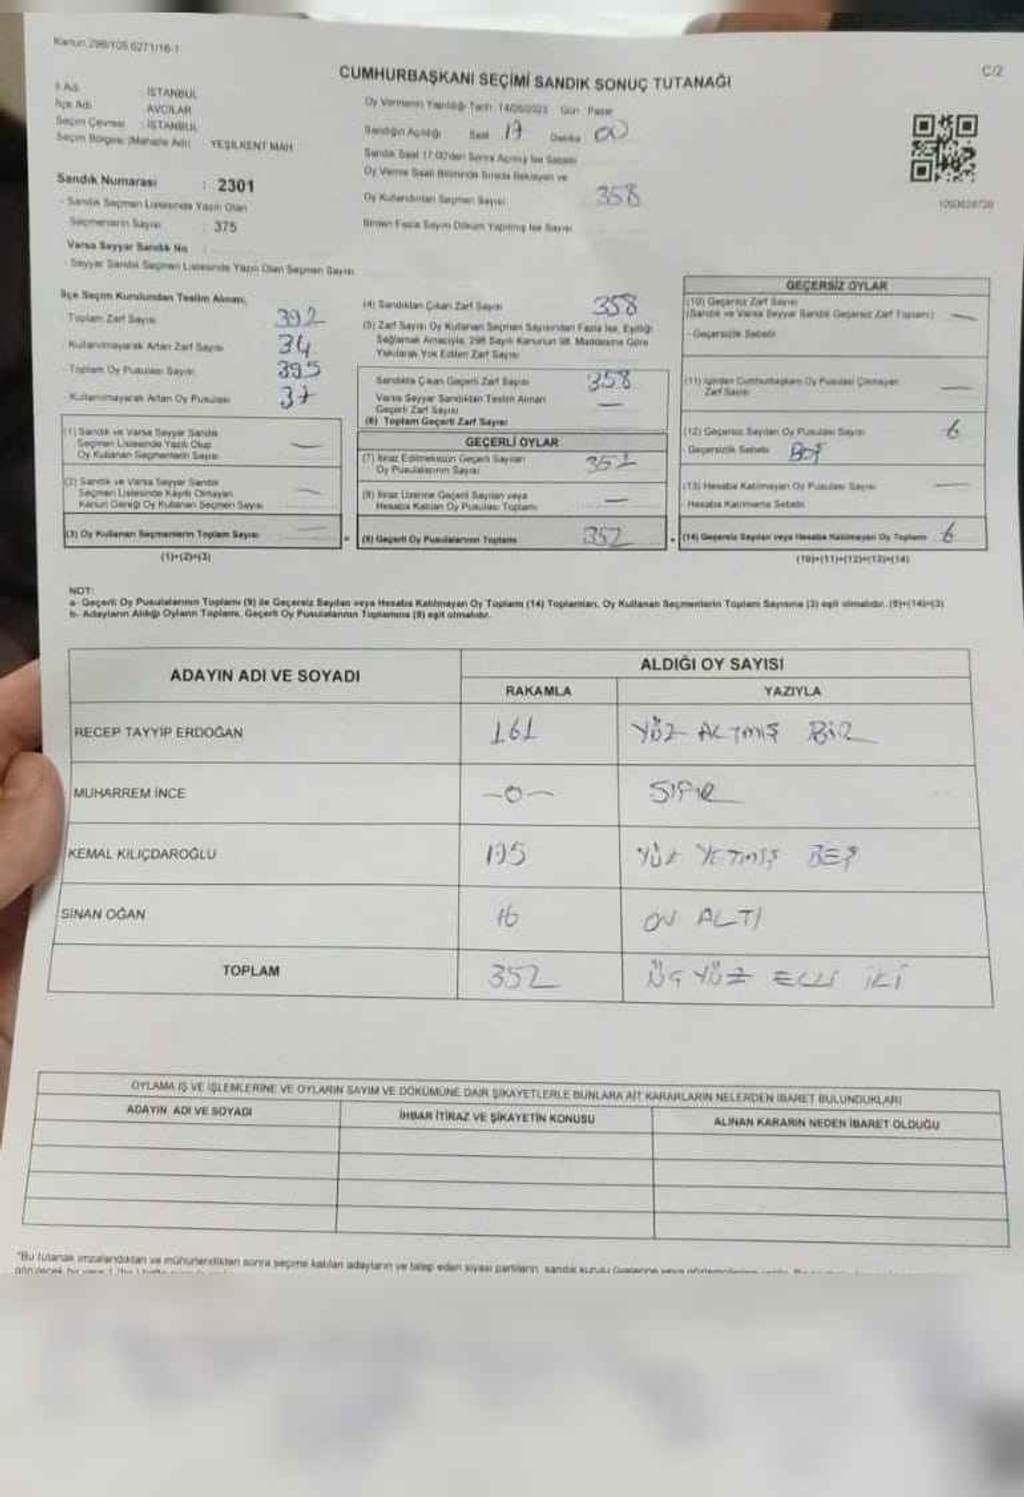 Kanun 298/105 6271/16-1
C/2
CUMHURBAŞKANI SEÇİMİ SANDIK SONUÇ TUTANAĞI
İl Adı : İSTANBUL
İlçe Adı AVCILAR
Seçim Çevresi : İSTANBUL
Seçim Bölgesi (Mahalle Adı) YEŞİLKENT MAH
Sandık Numarası : 2301
- Sandık Seçmen Listesinde Yazılı Olan
Seçmenlerin Sayısı : 375
Varsa Seyyar Sandık No
- Seyyar Sandık Seçmen Listesinde Yazılı Olan Seçmen Sayısı
Oy Vermenin Yapıldığı Tarih 14/05/2023 Gün Pazar
Sandığın Açıldığı Saat 17 Dakika 00
Sandık Saat 17:00'den Sonra Açılmış İse Sebebi
Oy Verme Saati Bitiminde Sırada Bekleyen ve
Oy Kullandırılan Seçmen Sayısı 358
Birden Fazla Sayım Döküm Yapılmış İse Sayısı
İlçe Seçim Kurulundan Teslim Alınan;
Toplam Zarf Sayısı 392
Kullanılmayarak Artan Zarf Sayısı 34
- Toplam Oy Pusulası Sayısı 395
- Kullanılmayarak Artan Oy Pusulası 37
(1) Sandık ve Varsa Seyyar Sandık
Seçmen Listesinde Yazılı Olup
Oy Kullanan Seçmenlerin Sayısı —
(2) Sandık ve Varsa Seyyar Sandık
Seçmen Listesinde Kayıtlı Olmayan
Kanun Gereği Oy Kullanan Seçmen Sayısı —
(3) Oy Kullanan Seçmenlerin Toplam Sayısı —
(1)+(2)=(3)
(4) Sandıktan Çıkan Zarf Sayısı 358
(5) Zarf Sayısı Oy Kullanan Seçmen Sayısından Fazla İse, Eşitliği
Sağlamak Amacıyla, 298 Sayılı Kanunun 98. Maddesine Göre
Yakılarak Yok Edilen Zarf Sayısı
Sandıkta Çıkan Geçerli Zarf Sayısı 358
Varsa Seyyar Sandıktan Teslim Alınan
Geçerli Zarf Sayısı —
(6) Toplam Geçerli Zarf Sayısı
GEÇERLİ OYLAR
(7) İtiraz Edilmeksizin Geçerli Sayılan
Oy Pusulalarının Sayısı 352
(8) İtiraz Üzerine Geçerli Sayılan veya
Hesaba Katılan Oy Pusulası Toplamı —
(9) Geçerli Oy Pusulalarının Toplamı 352
GEÇERSİZ OYLAR
(10) Geçersiz Zarf Sayısı
(Sandık ve Varsa Seyyar Sandık Geçersiz Zarf Toplamı) —
- Geçersizlik Sebebi
(11) İçinden Cumhurbaşkanı Oy Pusulası Çıkmayan
Zarf Sayısı —
(12) Geçersiz Sayılan Oy Pusulası Sayısı 6
- Geçersizlik Sebebi BOŞ
(13) Hesaba Katılmayan Oy Pusulası Sayısı —
- Hesaba Katılmama Sebebi
(14) Geçersiz Sayılan veya Hesaba Katılmayan Oy Toplamı 6
(10)+(11)+(12)+(13)=(14)
NOT:
a- Geçerli Oy Pusulalarının Toplamı (9) ile Geçersiz Sayılan veya Hesaba Katılmayan Oy Toplamı (14) Toplamları, Oy Kullanan Seçmenlerin Toplam Sayısına (3) eşit olmalıdır. (9)+(14)=(3)
b- Adayların Aldığı Oyların Toplamı, Geçerli Oy Pusulalarının Toplamına (9) eşit olmalıdır.
ADAYIN ADI VE SOYADI
ALDIĞI OY SAYISI
RAKAMLA YAZIYLA
RECEP TAYYİP ERDOĞAN 161 YÜZ ALTMIŞ BİR
MUHARREM İNCE -0- SIFIR
KEMAL KILIÇDAROĞLU 175 YÜZ YETMİŞ BEŞ
SİNAN OĞAN 16 ON ALTI
TOPLAM 352 ÜÇ YÜZ ELLİ İKİ
OYLAMA İŞ VE İŞLEMLERİNE VE OYLARIN SAYIM VE DÖKÜMÜNE DAİR ŞİKAYETLERLE BUNLARA AİT KARARLARIN NELERDEN İBARET BULUNDUKLARI
ADAYIN ADI VE SOYADI İHBAR İTİRAZ VE ŞİKAYETİN KONUSU ALINAN KARARIN NEDEN İBARET OLDUĞU
"Bu tutanak imzalandıktan ve mühürlendikten sonra seçime katılan adayların ve talep eden siyasi partilerin, sandık kurulu üyelerine veya